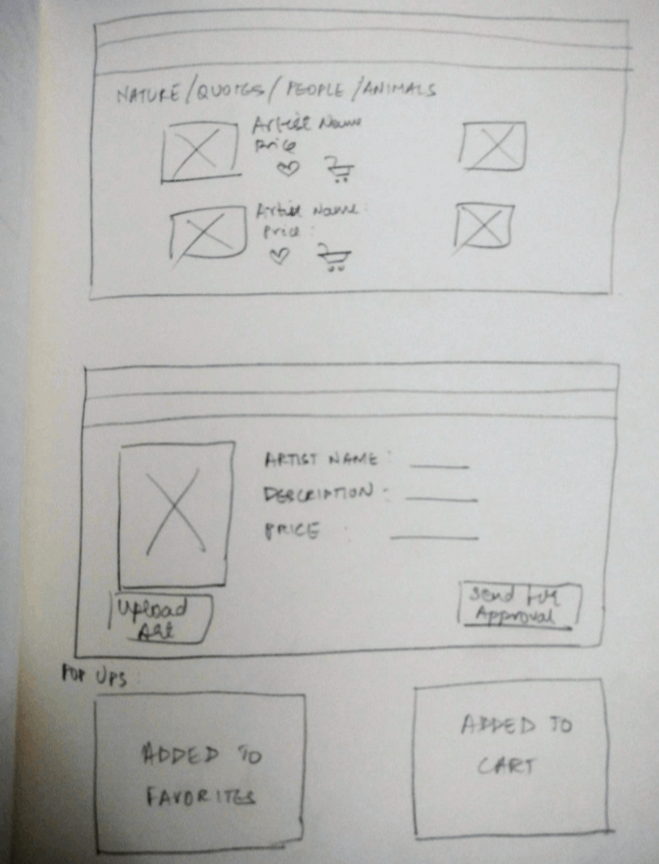 NATURE/QUOTES/PEOPLE/ANIMALS
Artist Name
Price
Artist Name:
Price:
ARTIST NAME:
DESCRIPTION:
PRICE :
Upload
Art
Send for
Approval
POP UPS:
ADDED TO
FAVORITES
ADDED TO
CART